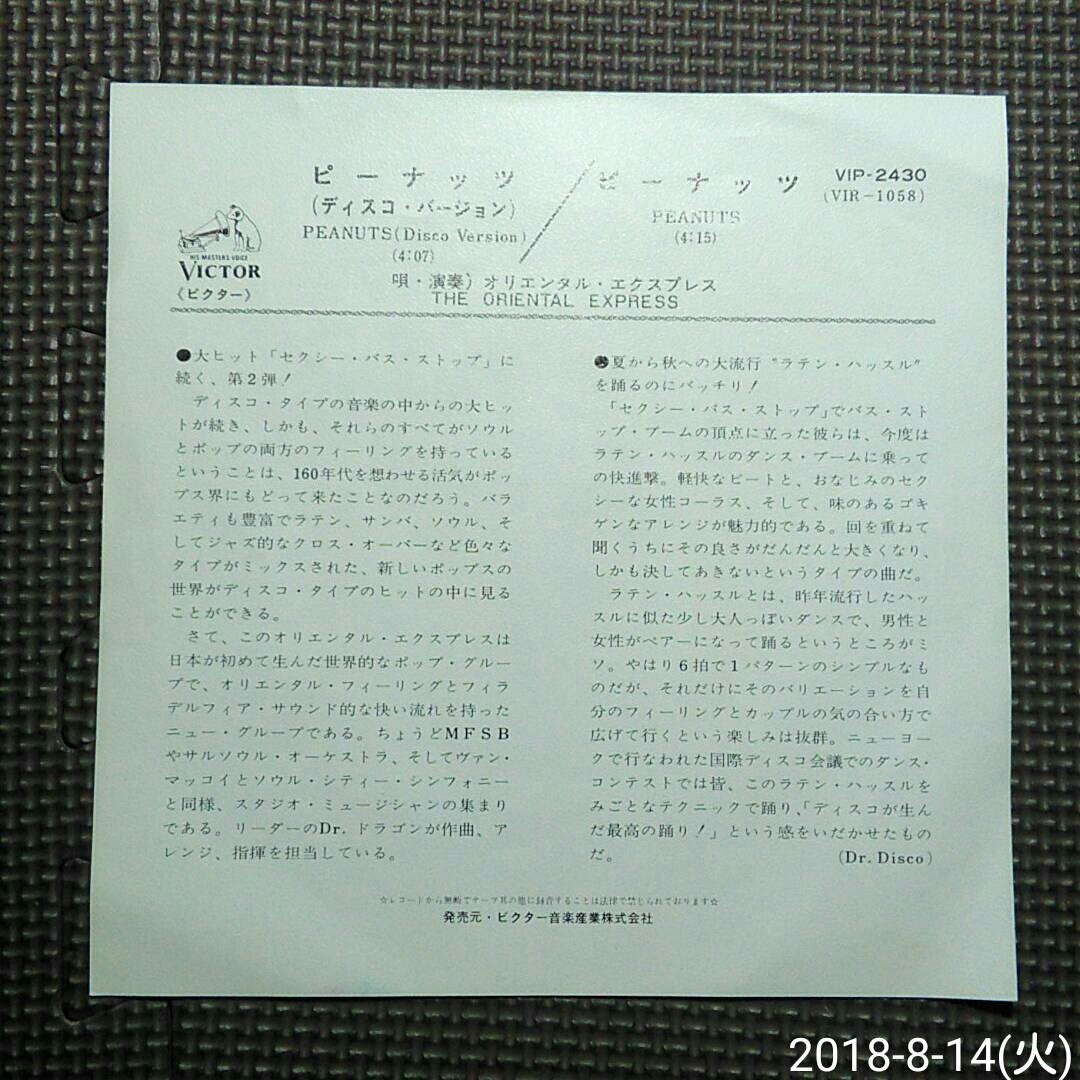 ピーナッツ
(ディスコ・バージョン)
PEANUTS(Disco Version)
(4:07)
ピーナッツ
PEANUTS
(4:15)
VIP-2430
(VIR-1058)
HIS MASTER'S VOICE
VICTOR
《ビクター》
唄・演奏) オリエンタル・エクスプレス
THE ORIENTAL EXPRESS
●大ヒット「セクシー・バス・ストップ」に
続く、第2弾!
ディスコ・タイプの音楽の中からの大ヒッ
トが続き、しかも、それらのすべてがソウル
とポップの両方のフィーリングを持っている
ということは、160年代を想わせる活気がポッ
プス界にもどって来たことなのだろう。バラ
エティも豊富でラテン、サンバ、ソウル、そ
してジャズ的なクロス・オーバーなど色々な
タイプがミックスされた、新しいポップスの
世界がディスコ・タイプのヒットの中に見る
ことができる。
さて、このオリエンタル・エクスプレスは
日本が初めて生んだ世界的なポップ・グルー
プで、オリエンタル・フィーリングとフィラ
デルフィア・サウンド的な快い流れを持った
ニュー・グループである。ちょうどMFSB
やサルソウル・オーケストラ、そしてヴァン・
マッコイとソウル・シティー・シンフォニー
と同様、スタジオ・ミュージシャンの集まり
である。リーダーのDr. ドラゴンが作曲、ア
レンジ、指揮を担当している。
●夏から秋への大流行 "ラテン・ハッスル"
を踊るのにバッチリ!
「セクシー・バス・ストップ」でバス・スト
ップ・ブームの頂点に立った彼らは、今度は
ラテン・ハッスルのダンス・ブームに乗って
の快進撃。軽快なビートと、おなじみのセク
シーな女性コーラス、そして、味のあるゴキ
ゲンなアレンジが魅力的である。回を重ねて
聞くうちにその良さがだんだんと大きくなり、
しかも決してあきないというタイプの曲だ。
ラテン・ハッスルとは、昨年流行したハッ
スルに似た少し大人っぽいダンスで、男性と
女性がペアーになって踊るというところがミ
ソ。やはり6拍で1パターンのシンプルなも
のだが、それだけにそのバリエーションを自
分のフィーリングとカップルの気の合い方で
広げて行くという楽しみは抜群。ニューヨー
クで行なわれた国際ディスコ会議でのダンス・
コンテストでは皆、このラテン・ハッスルを
みごとなテクニックで踊り、「ディスコが生ん
だ最高の踊り!」という感をいだかせたもの
だ。
(Dr. Disco)
☆レコードから無断でテープ其の他に録音することは法律で禁じられております☆
発売元・ビクター音楽産業株式会社
2018-8-14(火)